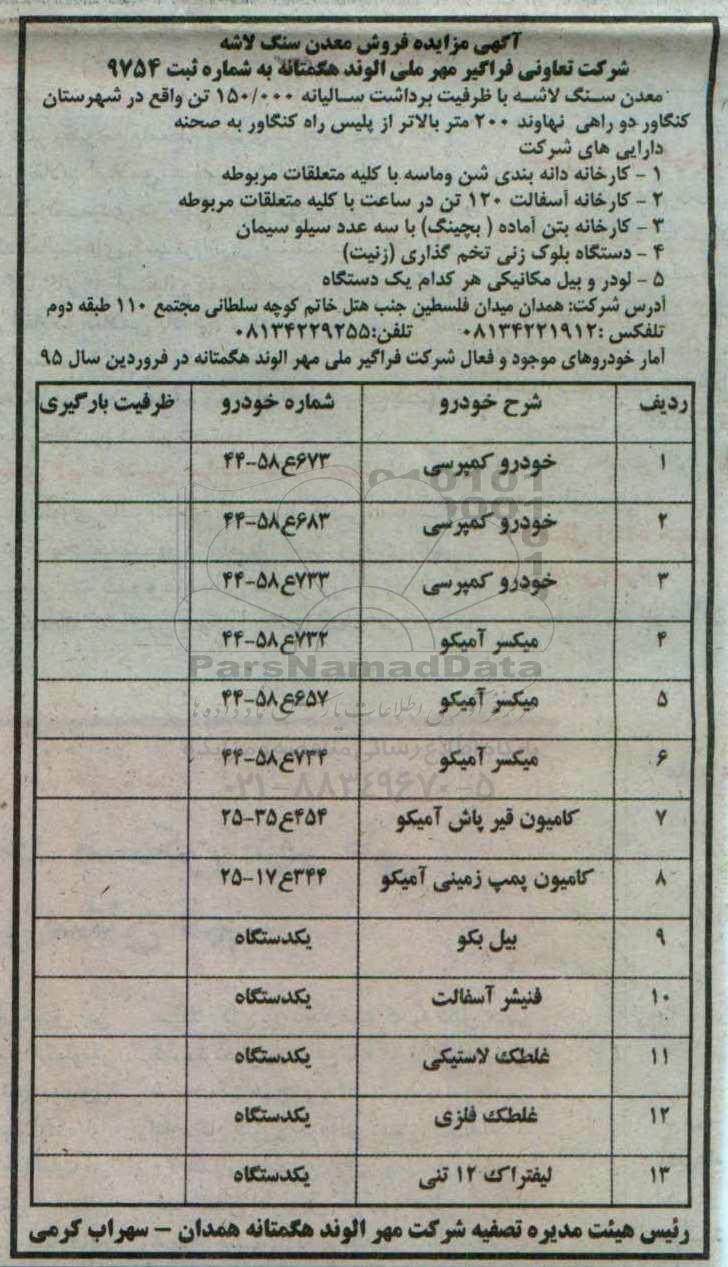 آگهی مزایده فروش معدن سنگ لاشه
شرکت تعاونی فراگیر مهر ملی الوند هگمتانه به شماره ثبت ۹۷۵۴
معدن سنگ لاشه با ظرفیت برداشت سالیانه ۱۵۰/۰۰۰ تن واقع در شهرستان
کنگاور دو راهی نهاوند ۲۰۰ متر بالاتر از پلیس راه کنگاور به صحنه
دارایی های شرکت
۱ - کارخانه دانه بندی شن وماسه با کلیه متعلقات مربوطه
۲ - کارخانه آسفالت ۱۲۰ تن در ساعت با کلیه متعلقات مربوطه
۳ - کارخانه بتن آماده ( بچینگ) با سه عدد سیلو سیمان
۴ - دستگاه بلوک زنی تخم گذاری (زنیت)
۵ - لودر و بیل مکانیکی هر کدام یک دستگاه
آدرس شرکت: همدان میدان فلسطین جنب هتل خاتم کوچه سلطانی مجتمع ۱۱۰ طبقه دوم
تلفکس :۰۸۱۳۴۲۲۱۹۱۲ تلفن:۰۸۱۳۴۲۲۹۲۵۵
آمار خودروهای موجود و فعال شرکت فراگیر ملی مهر الوند هگمتانه در فروردین سال ۹۵
ردیف شرح خودرو شماره خودرو ظرفیت بارگیری
۱ خودرو کمپرسی ۶۷۳ع۵۸-۴۴
۲ خودرو کمپرسی ۶۸۳ع۵۸-۴۴
۳ خودرو کمپرسی ۷۳۳ع۵۸-۴۴
۴ میکسر آمیکو ۷۳۲ع۵۸-۴۴
۵ میکسر آمیکو ۶۵۷ع۵۸-۴۴
۶ میکسر آمیکو ۷۳۴ع۵۸-۴۴
۷ کامیون قیر پاش آمیکو ۴۵۴ع۳۵-۲۵
۸ کامیون پمپ زمینی آمیکو ۳۴۴ع۱۷-۲۵
۹ بیل بکو یکدستگاه
۱۰ فنیشر آسفالت یکدستگاه
۱۱ غلطک لاستیکی یکدستگاه
۱۲ غلطک فلزی یکدستگاه
۱۳ لیفتراک ۱۲ تنی یکدستگاه
رئیس هیئت مدیره تصفیه شرکت مهر الوند هگمتانه همدان – سهراب کرمی
ParsNamadData
۰۲۱-۸۸۳۴۹۶۷۰-۵